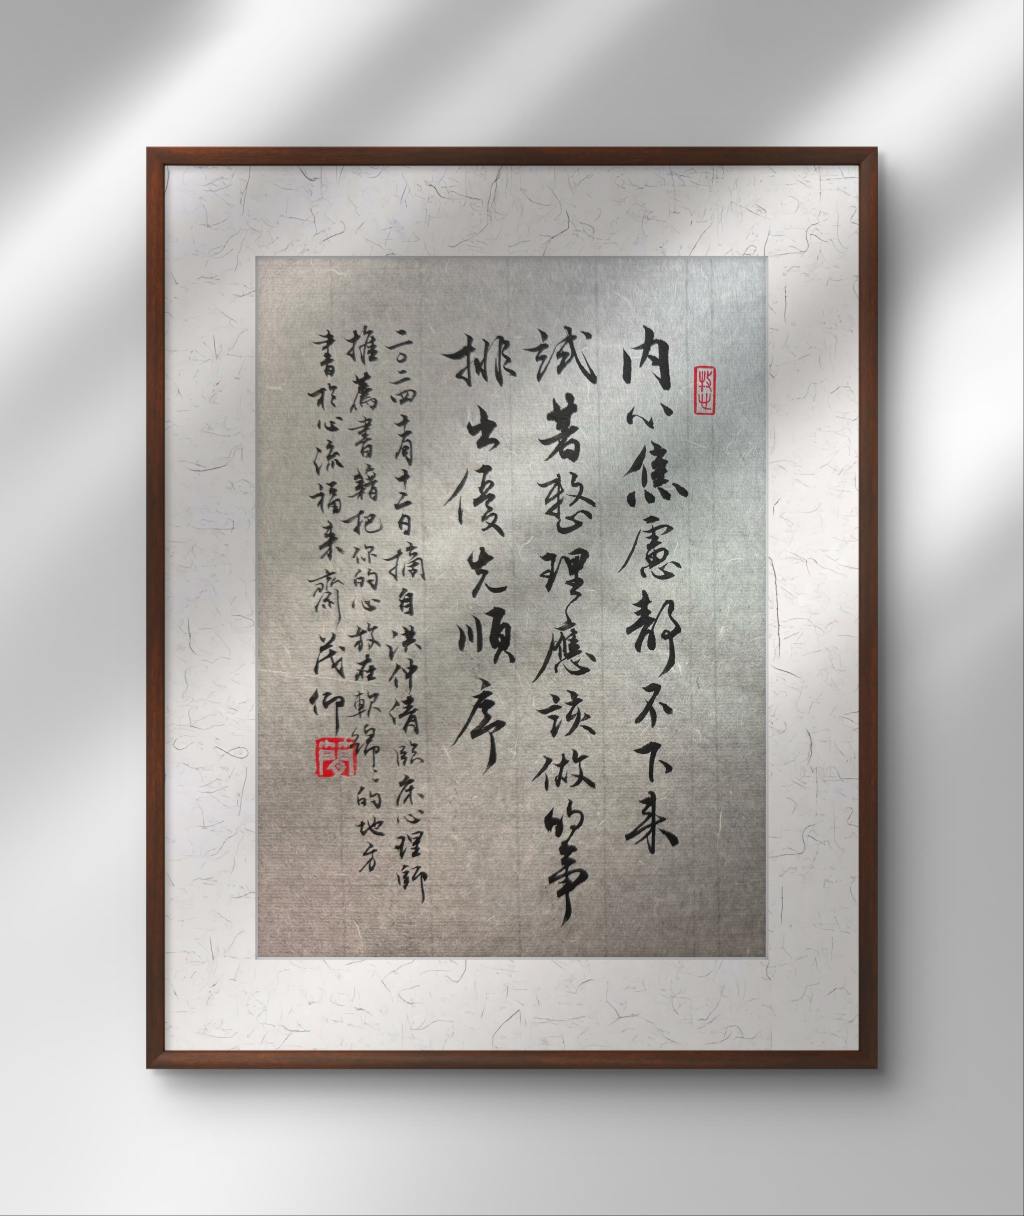 内心焦慮靜不下来
試著整理應該做的事
排出優先順序
二〇二四十月十二日摘自洪仲清臨床心理師
推薦書籍把你的心放在軟綿〻的地方
書於心流福来齋茂卿